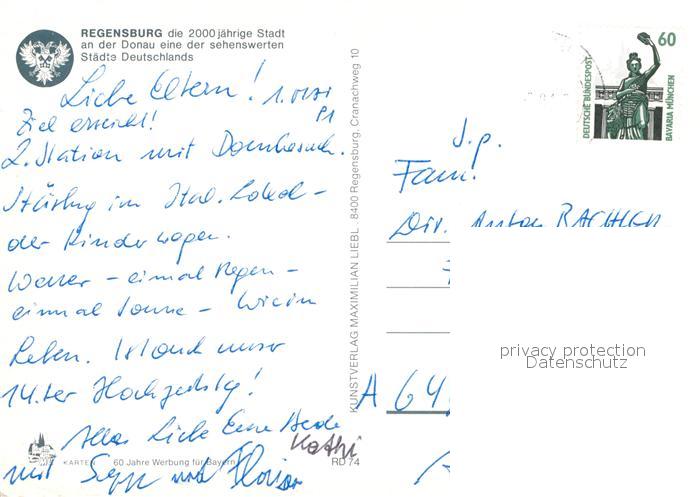 REGENSBURG die 2000jährige Stadt
an der Donau eine der sehenswerten
Städte Deutschlands
Liebe Eltern! 1. MAI
91
Ziel erreicht!
2. Station mit Dombesuch.
Stärkung im Ital. Lokal -
der Kinderwagen.
Wetter - einmal Regen -
einmal Sonne - wie im
Leben. Ist auch unser
14.ter Hochzeitstag!
Alles Liebe Eure
Kathi
mit Sepp und Florian
KARTEN 60 Jahre Werbung für Bayern RD 74
KUNSTVERLAG MAXIMILIAN LIEBL . 8400 Regensburg, Cranachweg 10
60
DEUTSCHE BUNDESPOST
BAVARIA MÜNCHEN
Fam.
Dir. Anton
privacy protection
Datenschutz
A 64